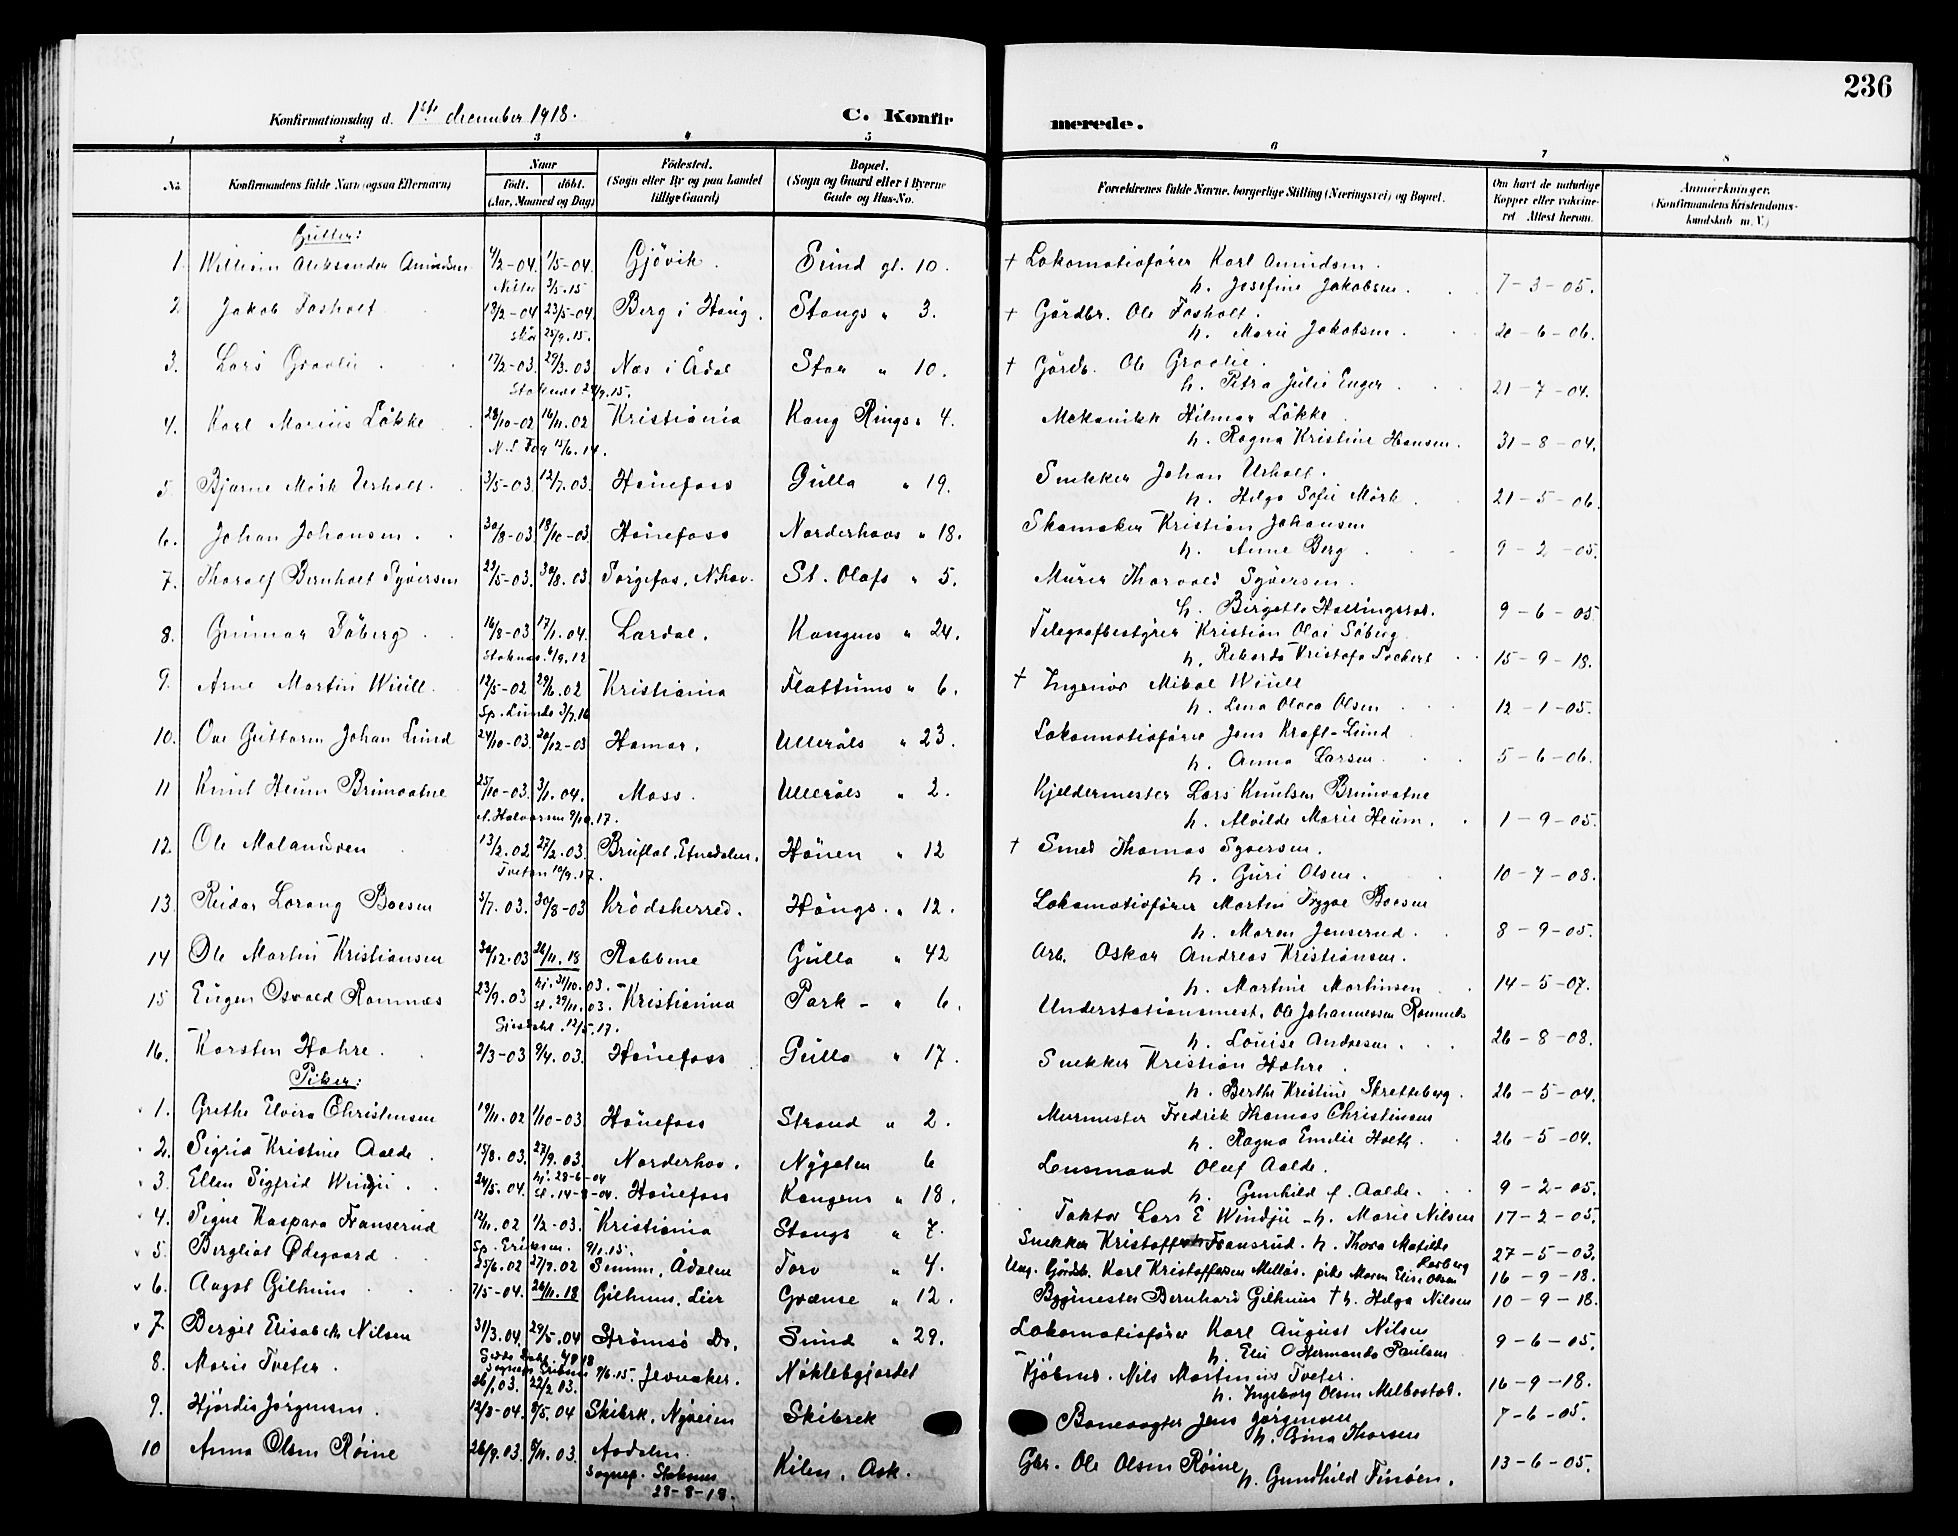 236
Konfirmationsdag d. 1ste december 1918.
C. Konfirmerede.
1 2 3 4 5 6 7 8
No. Konfirmandens fulde Navn (ogsaa Efternavn)
Naar födt. döbt. (Aar, Maaned og Dag)
Födested. (Sogn eller By og paa Landet tillige Gaard)
Bopæl. (Sogn og Gaard eller i Byerne Gade og Hus-No.
Forældrenes fulde Navne, borgerlige Stilling (Næringsvei) og Bopæl.
Om havt de naturlige Kopper eller vakcineret. Attest herom.
Anmærkninger. (Konfirmandens Kristendomskundskab m. V.)
Gutter:
1. William Aleksander Amundsen 4/2-04. 1/5-04. Gjövik. Sund gt. 10. † Lokomotivförer Karl Amundsen.
3/5.15 h. Josefine Jakobsen. 7-3-05.
2. Jakob Fosholt 13/2-04 23/5-04. Berg i Haug. Stangs " 3. † Gårdbr. Ole Fosholt.
25/9.15. h. Marie Jakobsen. 20-6-06.
3. Lars Graalie 17/2-03. 29/3.03 Næs i Ådal Stor " 10. † Gårdb. Ole Graalie.
24/9.15. h. Petra Julie Enger 21-7-04.
4. Karl Marius Lökke 28/10-02 16/11.02 Kristiania Kong Rings " 4. Mekanikk Hilmar Lökke
15/6.14. h. Ragna Kristine Hansen. 31-8-04.
5. Bjarne Mörk Urholt. 3/5-03. 12/7.03. Hönefoss Gulla " 19. Snekker Johan Urholt.
h. Helga Sofie Mörk 21-5-06.
6. Johan Johansen. 30/8-03. 18/10-03. Hönefoss Norderhovs " 18. Skomaker Kristian Johansen
h. Anne Berg 9-2-05.
7. Thoralf Bernholt Syversen 22/5-03. 30/8.03. N.hov. St. Olafs " 5. Murer Thorvald Syversen.
h. Birgette Hallingsrod. 9-6-05
8. Gunnar Söberg 16/8-03 17/1.04. Lardal. Kongens " 24. Telegrafbestyrer Kristian Olai Söberg
h. 15-9-18.
9. Arne Martin Wiull 12/5-02 29/6.02 Kristiania Flattums " 6. † Ingeniör Mikal Wiull
Sp. Lunde 3/7.16 h. Lena Olava Olsen 12-1-05.
10. Ove Guttorm Johan Lund 24/10-03. 20/12-03 Hamar. Ulleråls " 23. Lokomotivförer Jens Kraft-Lund
h. Anna Larsen 5-6-06.
11 Knut Heum Brunvatne 25/10-03. 3/1.04. Moss. Ulleråls " 2. Kjeldermester Lars Knutsen Brunvatne
Halvorsen 9/10.17. h. Alvilde Marie Heum. 1-9-05.
12 Ole Molandsven 13/2.02 27/2.03. Bruflat, Etnedalen. Hönen " 12 † Smed Thomas Syversen.
Tveten 10/9.17. h. Guri Olsen. 10-7-08.
13. Reidar Lorang Boesen 3/7.03. 30/8-03 Krödsherred. Haugs " 12. Lokomotivförer Martin Trygve Boesen
h. Maren Jenserud. 8-9-05.
14 Ole Martin Kristiansen 30/12.03 26/11.18 Robbme Gulla " 42 Arb. Oskar Andreas Kristiansen.
h. Martine Martinsen 14-5-07.
15 Eugen Osvald Ramnæs 23/9.03 hj. 31/10.03. st. 29/11.03. Kristiania Park- " 6. Understationsmest. Ole Johannessen Ramnæs
12/5.17. h. Louise Andresen. 26-8-08.
16. Karsten Hahre. 2/3-03 9/4.03. Hönefoss Gulla " 17. Snekker Kristian Hahre.
h. Berthe Kristine Skretteberg. 26-5-04.
Piker:
1. Grethe Elvira Christensen 19/11.02 1/10-03. Hönefoss Strand " 2. Murmester Fredrik Thomas Christensen
h. Ragna Emilie Hoeth. 26-5-04.
2. Sigrid Kristine Aalde 15/8.03. 27/9.03. Norderhov. Nygaten 6 Lensmand Oluf Aalde.
h. Gunhild f. Aalde. 9-2-05.
3. Ellen Sigfrid Windju. 24/5.04. hj. 28-6-04 Hönefoss Kongens " 18. Faktor Lars E Windju - h. Marie Nilsen 17-2-05.
4. Signe Kaspara Franserud 12/11.02 1/2-03. Kristiania Stangs " 7. Snekker Kristoffer Fransrud. h. Thora Matilde 27-5-03.
Sp. Eriksen. 9/1.15.
5. Bergliot Ødegaard 25/6.02 27/7.02 Ådalen Torv " 4. Ung. Gårdb. Karl Kristoffersen Mellös. pike Maren Elise Olsen 16-9-18.
6. Aagot Gilhuus 7/5-04. 26/11.18 Gilhuus, Lier Grænse " 12. Bygmester Bernhard Gilhuus † h. Helga Nilsen 10-9-18.
7. Bergit Elisabeth Nilsen 31/3.04 29/5.04 Strömsö Dr. Sund " 29. Lokomotivförer Karl August Nilsen
h. Eli Hermanda Paulsen 9-6-05.
8. Marie Tveter. 26/1.03. 22/2.03. 9/6.15. Jevnaker. Nöklebgjordet Nils Martinus Tveter.
h. Ingeborg Olsen Melbostad. 16-9-18.
9. Hjördis Jörgensen. 12/3-04. 8/5.04 Skibrk, Nyveien Skibrek Banevogter Jens Jörgensen 7-6-05.
h. Gina Thorsen
10 Anna Olsen Röine 26/9.03. 8/11.03. Aadalen. Kilen, Ask. Gbr. Ole Olsen Röine 13-6-05.
Sognep. Stabenes h. Gundhild Finsöen.
28-8-18.